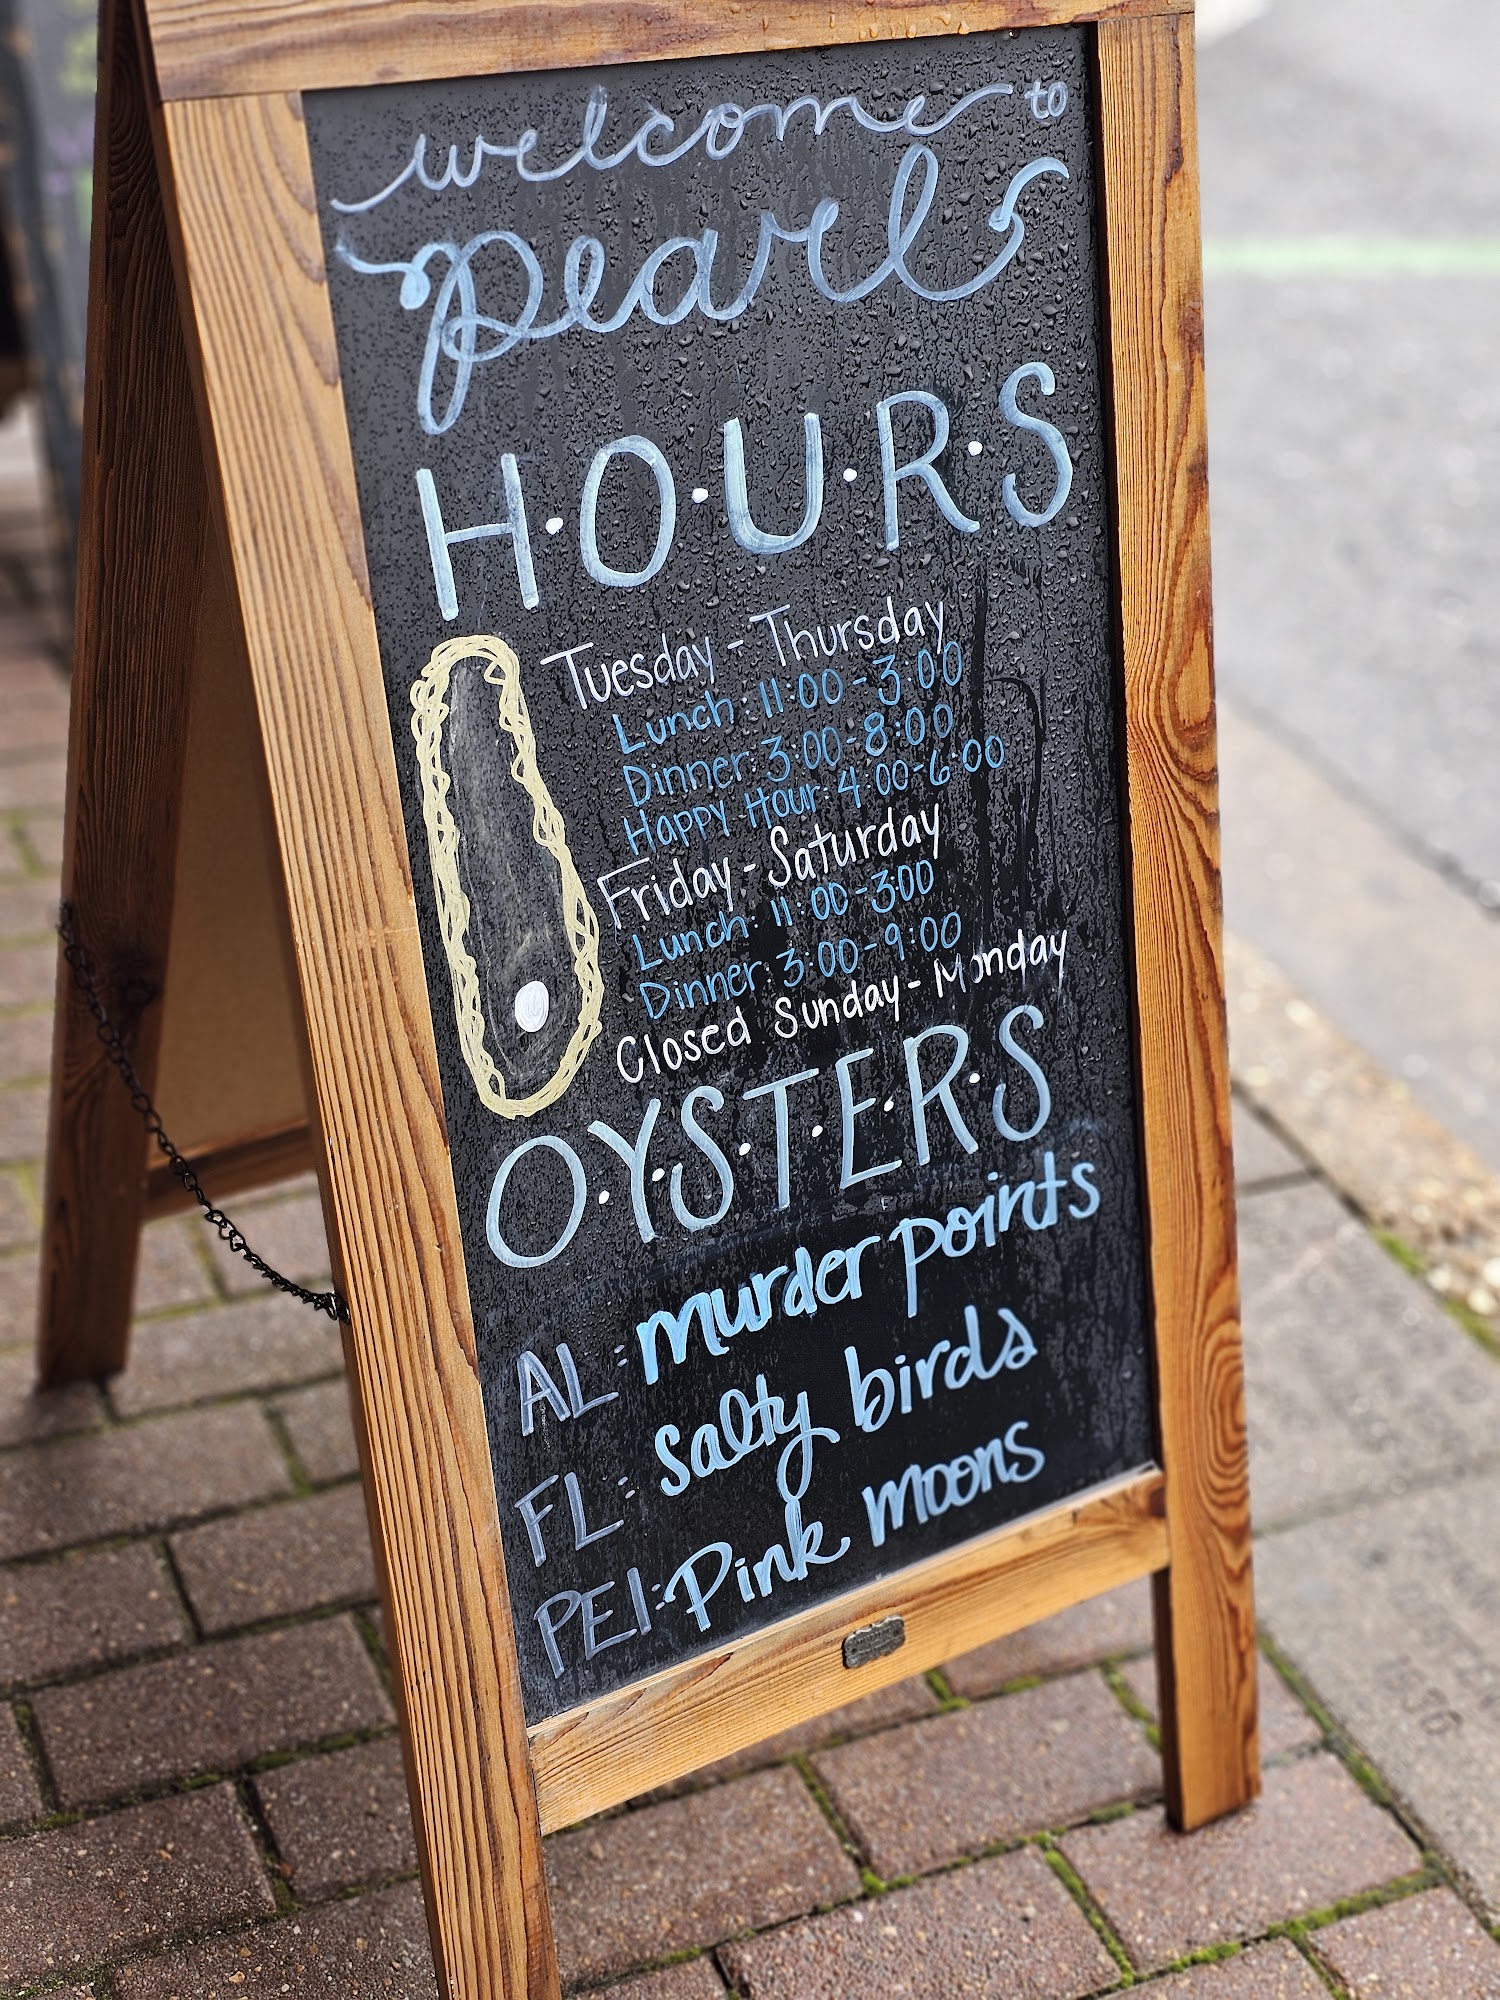 welcome to
pearl
H·O·U·R·S
Tuesday - Thursday
Lunch: 11:00-3:00
Dinner: 3:00-8:00
Happy Hour: 4:00-6:00
Friday - Saturday
Lunch: 11:00-3:00
Dinner: 3:00-9:00
Closed Sunday - Monday
O·Y·S·T·E·R·S
AL: murder points
FL: salty birds
PEI: Pink moons